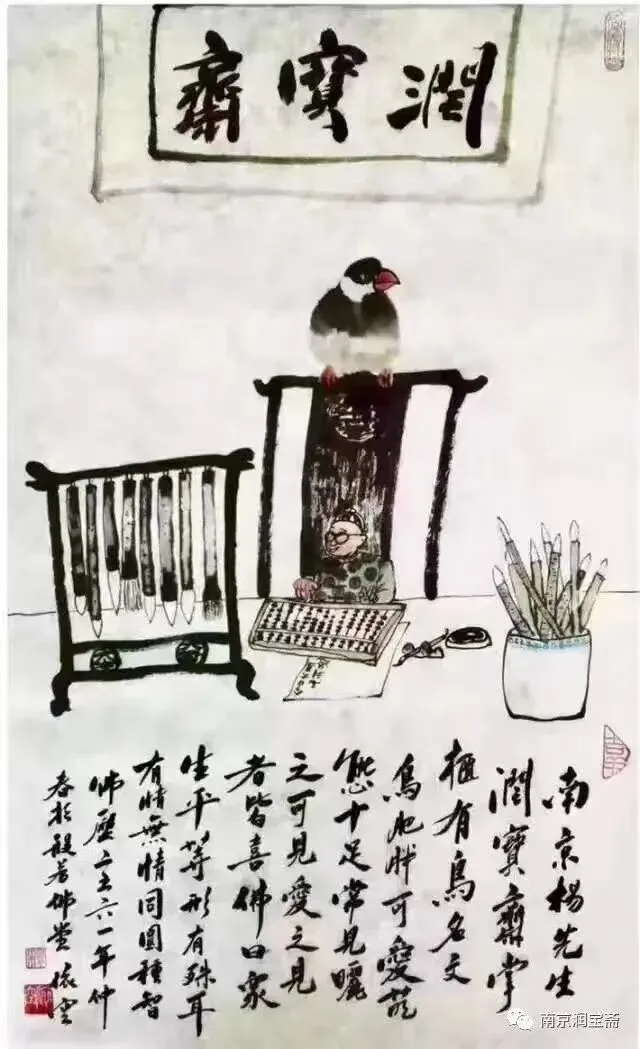 潤寶齋
南京楊先生
潤寶齋掌
櫃有鳥名文
鳥肥胖可愛萌
態十足常見曬
之可見愛之見
者皆喜佛曰衆
生平等形有殊耳
有情無情同圓種智
佛曆二五六一年仲
春於般若佛堂
南京润宝斋